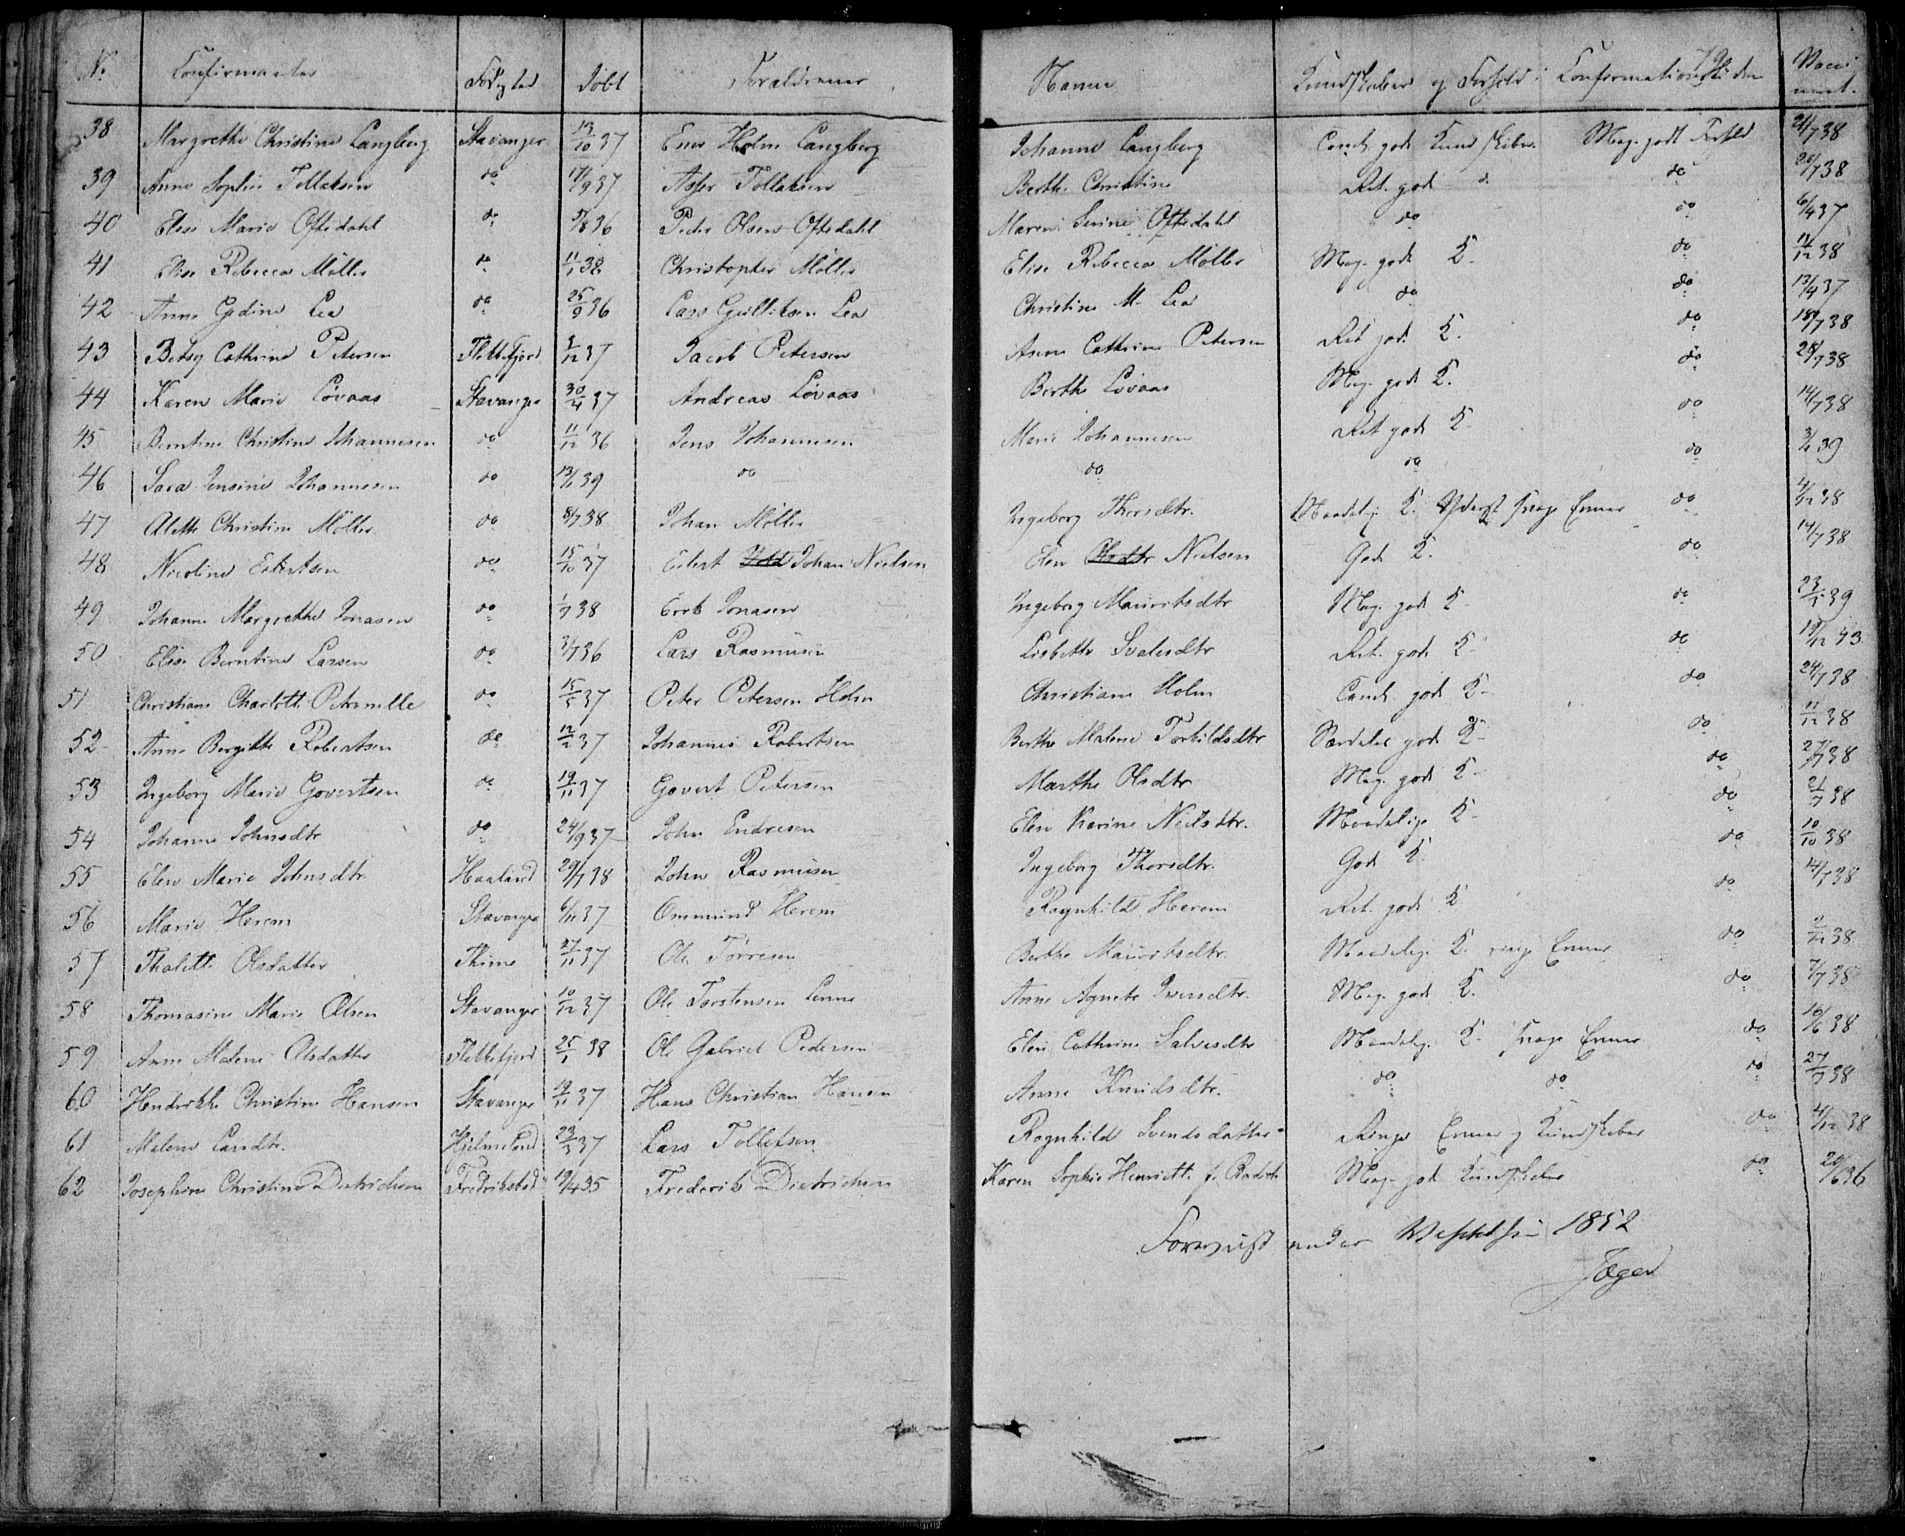 N. Confirmanter Fødested Døbt Forældrenes Navne Kundskaber og Forhold Confirmationstiden Vacci neret.
38 Margrethe Christine Langberg Stavanger 13/10 37 Ener Holm Langberg Johanne Langberg god Kundskaber Meg. godt Forhold 21/7 38
39 Anne Sophie Tollaksen do 17/9 37 Asser Tollaksen Berthe Christine Ret god do 20/7 38
40 Elise Marie Oftedahl do /8 36 Peder Olsen Oftedahl Maren Serine Oftedahl do do 6/4 37
41 Elise Rebecca Møller do 11/1 38 Christopher Møller Elise Rebecca Møller Meg. god K. do 11/12 38
42 Anne Gedine Lea do 25/9 36 Lars Gulliksen Lea Christine M. Lea do do 13/4 37
43 Betsy Cathrine Petersen Flekkefjord /12 37 Jacob Petersen Anne Cathrine Petersen Ret god K. do 18/7 38
44 Karen Marie Løvaas Stavanger 30/4 37 Andreas Løvaas Berthe Løvaas Meg. god K. do 28/7 38
45 Berntine Christine Johannesen do 11/12 36 Jens Johannesen Marie Johannesen Ret god K. do 14/7 38
46 Sara Jensine Johannesen do 13/1 39 do do do do 3/ 39
47 Alette Christine Møller do 8/7 38 Johan Møller Ingeborg Thorsdtr. Maadelig K. Yderst svage Evner do 4/12 38
48 Nicoline Eilertsen do 15/10 37 Eilert Johan Nielsen Elen Olsdtr Nielsen God K. do 14/7 38
49 Johanne Margrethe Jonasen do 1/7 38 Erik Jonasen Ingeborg Mauritsdtr Meg. god K. do 23/ 39
50 Elise Berntine Larsen do /7 36 Lars Rasmusen Lisbeth Svalesdtr Ret. god K. do 19/12 43
51 Christiane Charlotte Petronelle do 15/5 37 Peter Petersen Holm Christiane Holm god K. do 24/7 38
52 Anne Bergithe Robertsen do 12/2 37 Johannes Robertsen Berthe Malene Torkildsdtr Særdeles god K. do 11/12 38
53 Ingeborg Marie Govertsen do 19/11 37 Govert Petersen Marthe Olsdtr Meg. god K. do 27/7 38
54 Johanne Johnsdtr do 24/9 37 John Endresen Elen Karine Nielsdtr. Maadelige K. do 21/7 38
55 Elen Marie Johnsdtr. Haaland 29/7 38 John Rasmusen Ingeborg Thorsdtr. God K. do 10/10 38
56 Marie Herem Stavanger 6/11 37 Ommund Herem Ragnhild Herem Ret. god K do 14/7 38
57 Thalette Olsdatter Thime 27/11 37 Ole Tørresen Berthe Mauritsdtr. Maadelig K. ringe Evner do /12 38
58 Thomasine Marie Olsen Stavanger 10/12 37 Ole Torstensen Lenne Anne Agnete Iversdtr. Meg. god K. do 7/7 38
59 Anne Malene Olsdatter Flekkefjord 25/1 38 Ole Gabriel Pedersen Elen Cathrine Salvesdtr Maadelig K. svage Evner do 16/6 38
60 Hendrikke Christine Hansen Stavanger 19/11 37 Hans Christian Hansen Anne Knudsdtr. do do do 27/7 38
61 Malene Larsdtr. Hjelmeland 23/3 37 Lars Tollefsen Ragnhild Svendsdatter Ringe Evner og Kundskaber do 4/12 38
62 Josephine Christine Dietrichsen Fredrikstad 19/4 35 Frederik Dietrichsen Karen Sophie Henriette f. Meg. god Kundskaber do 20/6 36
under 1852
Jæger